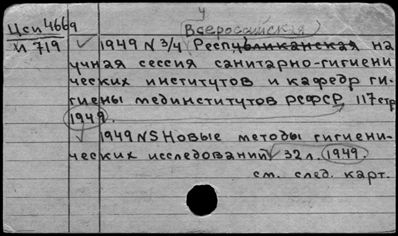 4
Всероссийская)
Цси 4669
И 719
1949 N 3/4 Республиканская на
учная сессия санитарно-гигиени
ческих институтов и кафедр ги-
гиены мединститутов РСФСР. 117 стр
1949.
1949 N5 Новые методы гигиени-
ческих исследований 32 л. 1949.
см. след. карт.